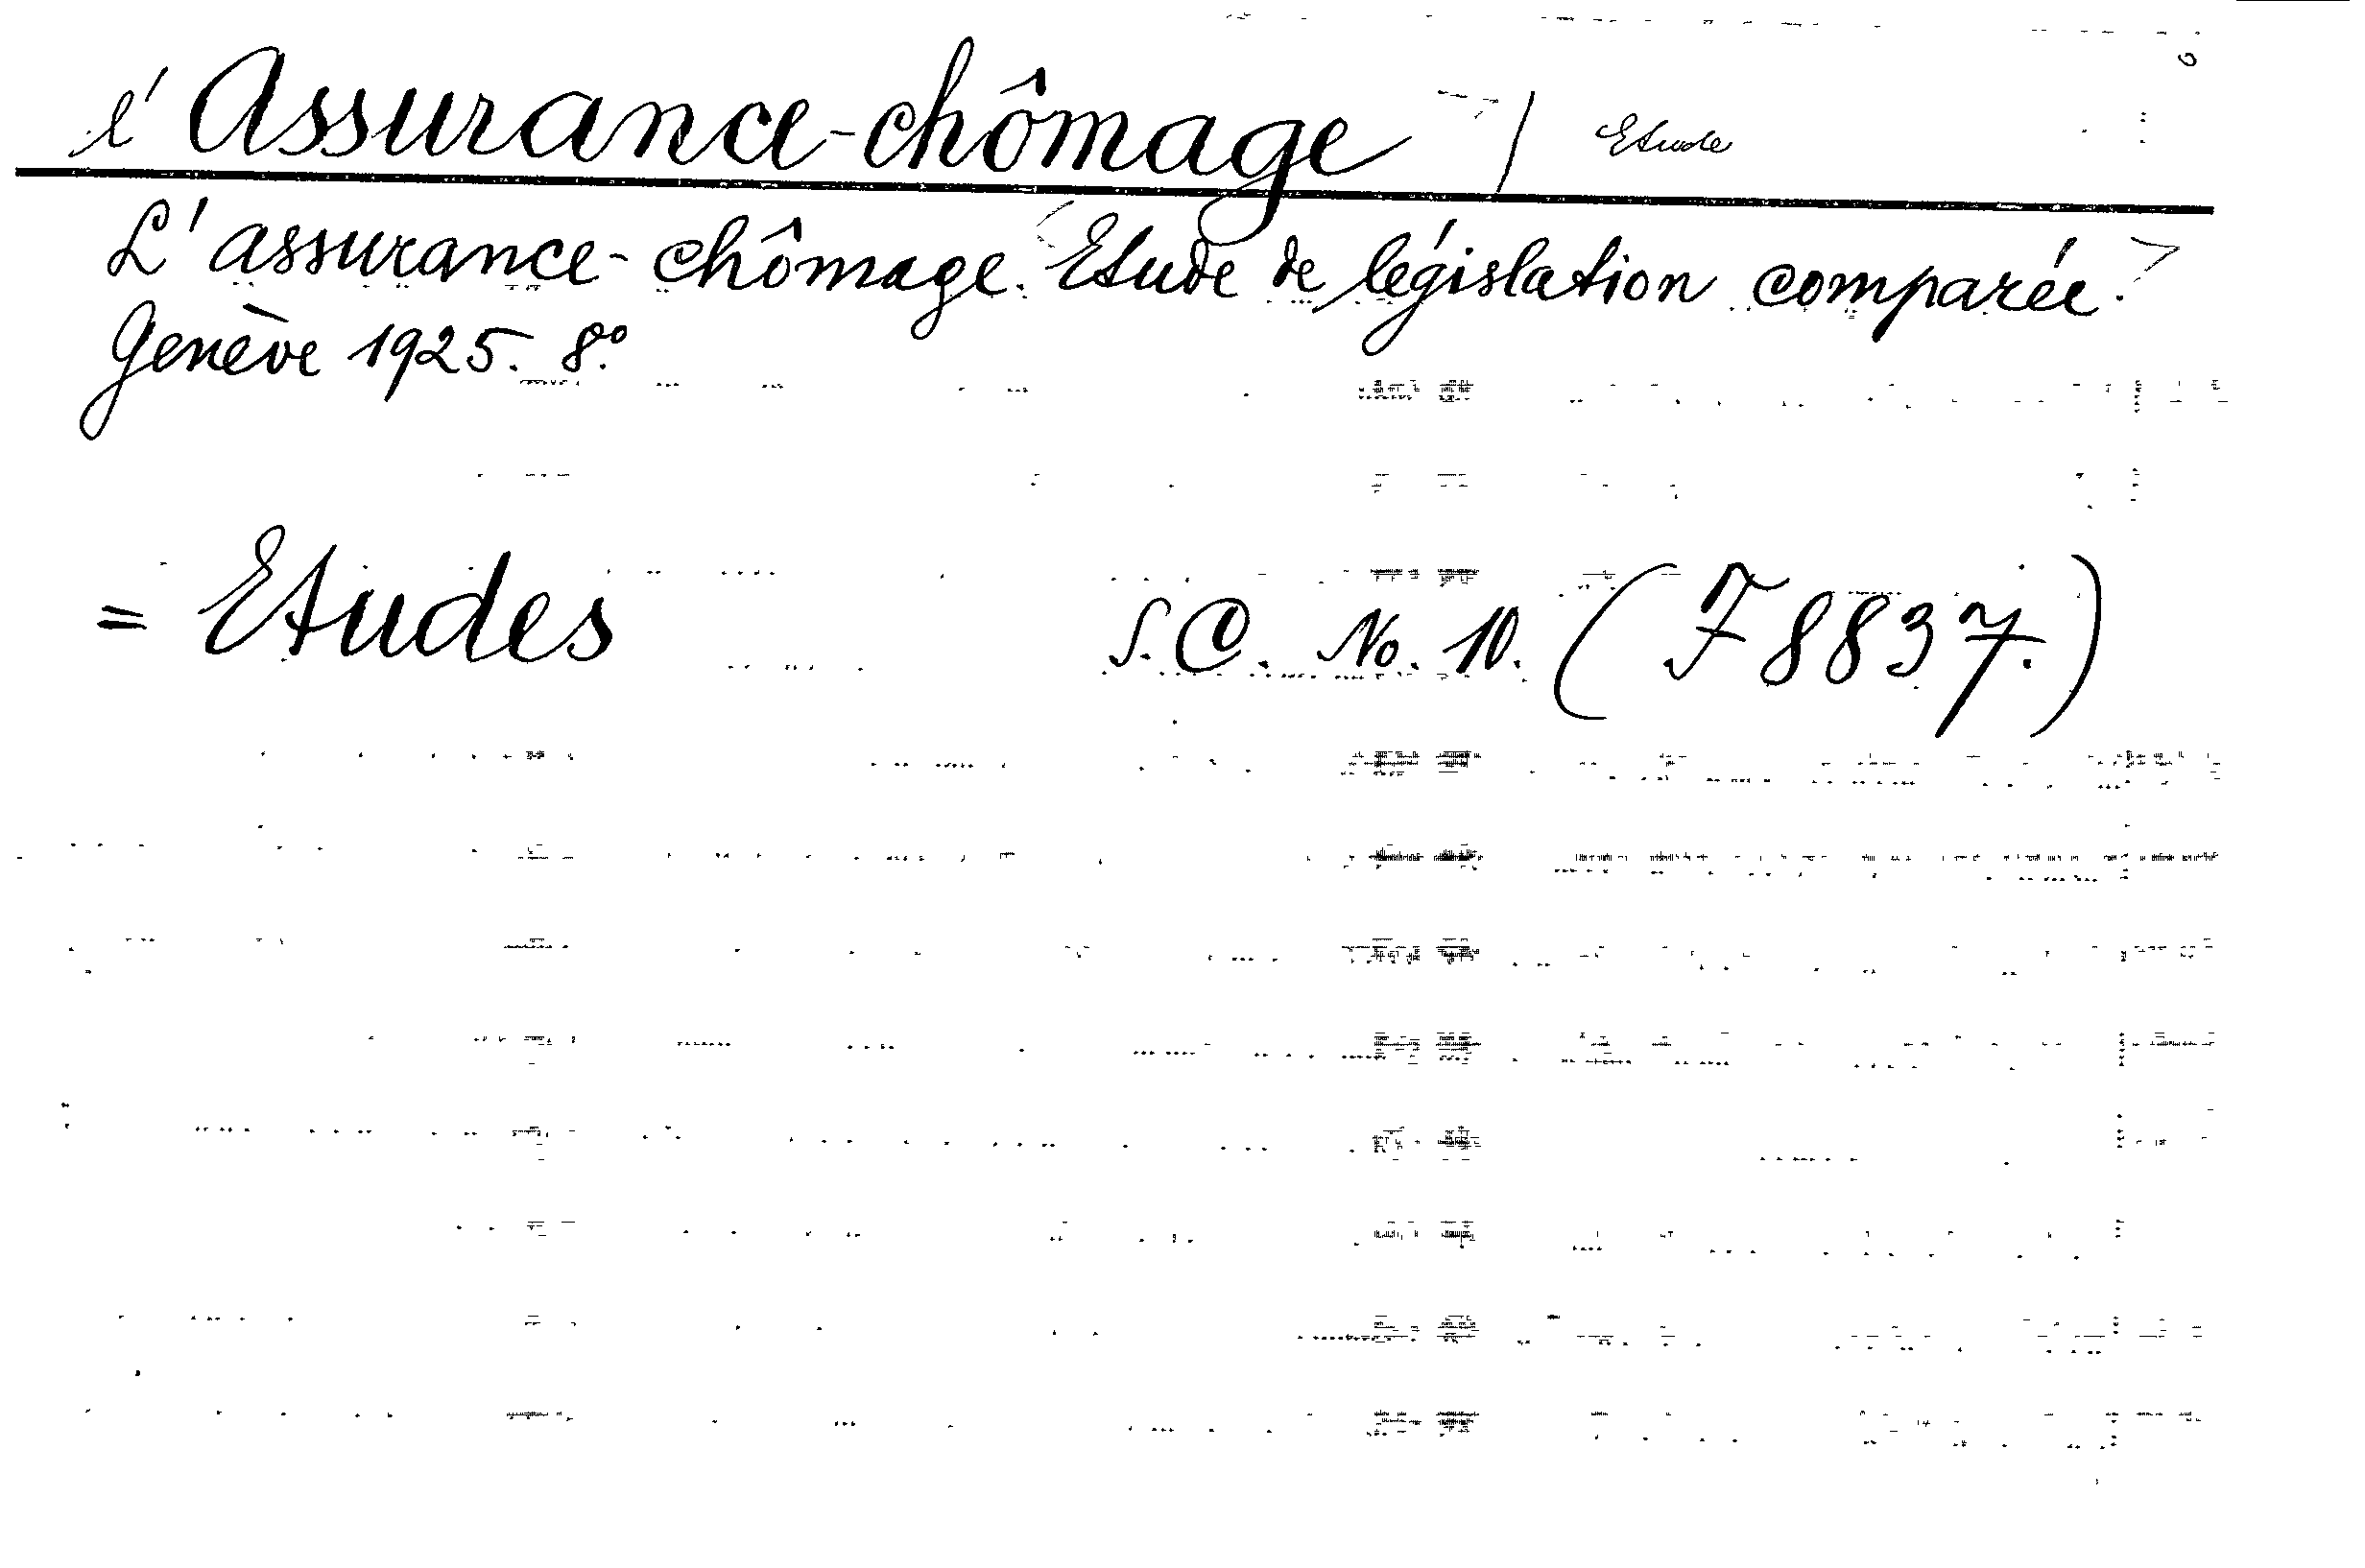 l' Assurance-chômage / Etude
L'assurance-chômage. <Etude de législation comparée.>
Genève 1925. 8º.
= Etudes S. C. No. 10. (F 8837.)